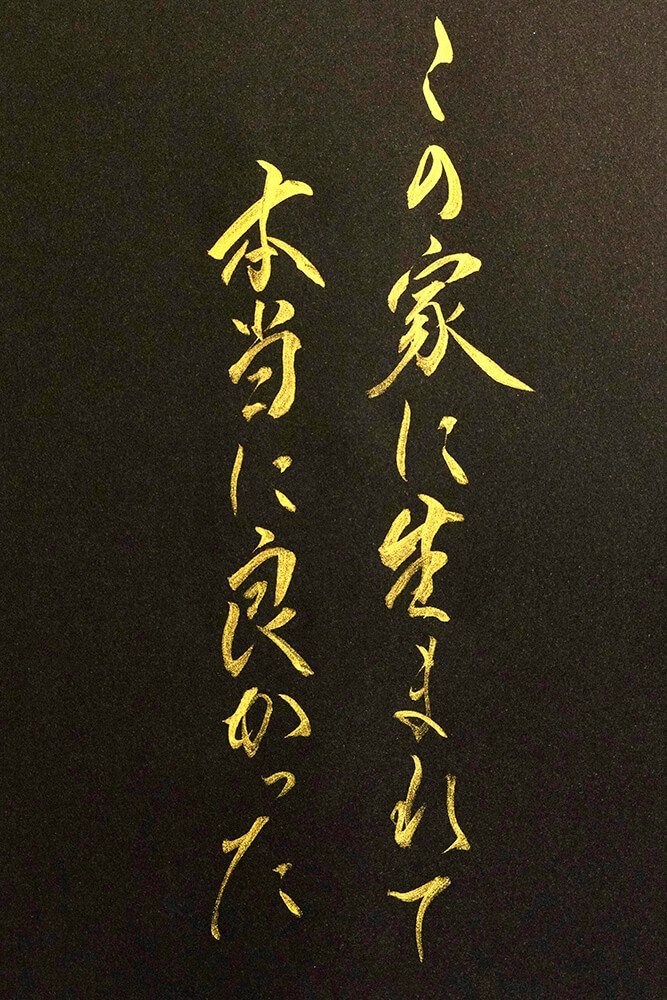 この家に生まれて
本当に良かった